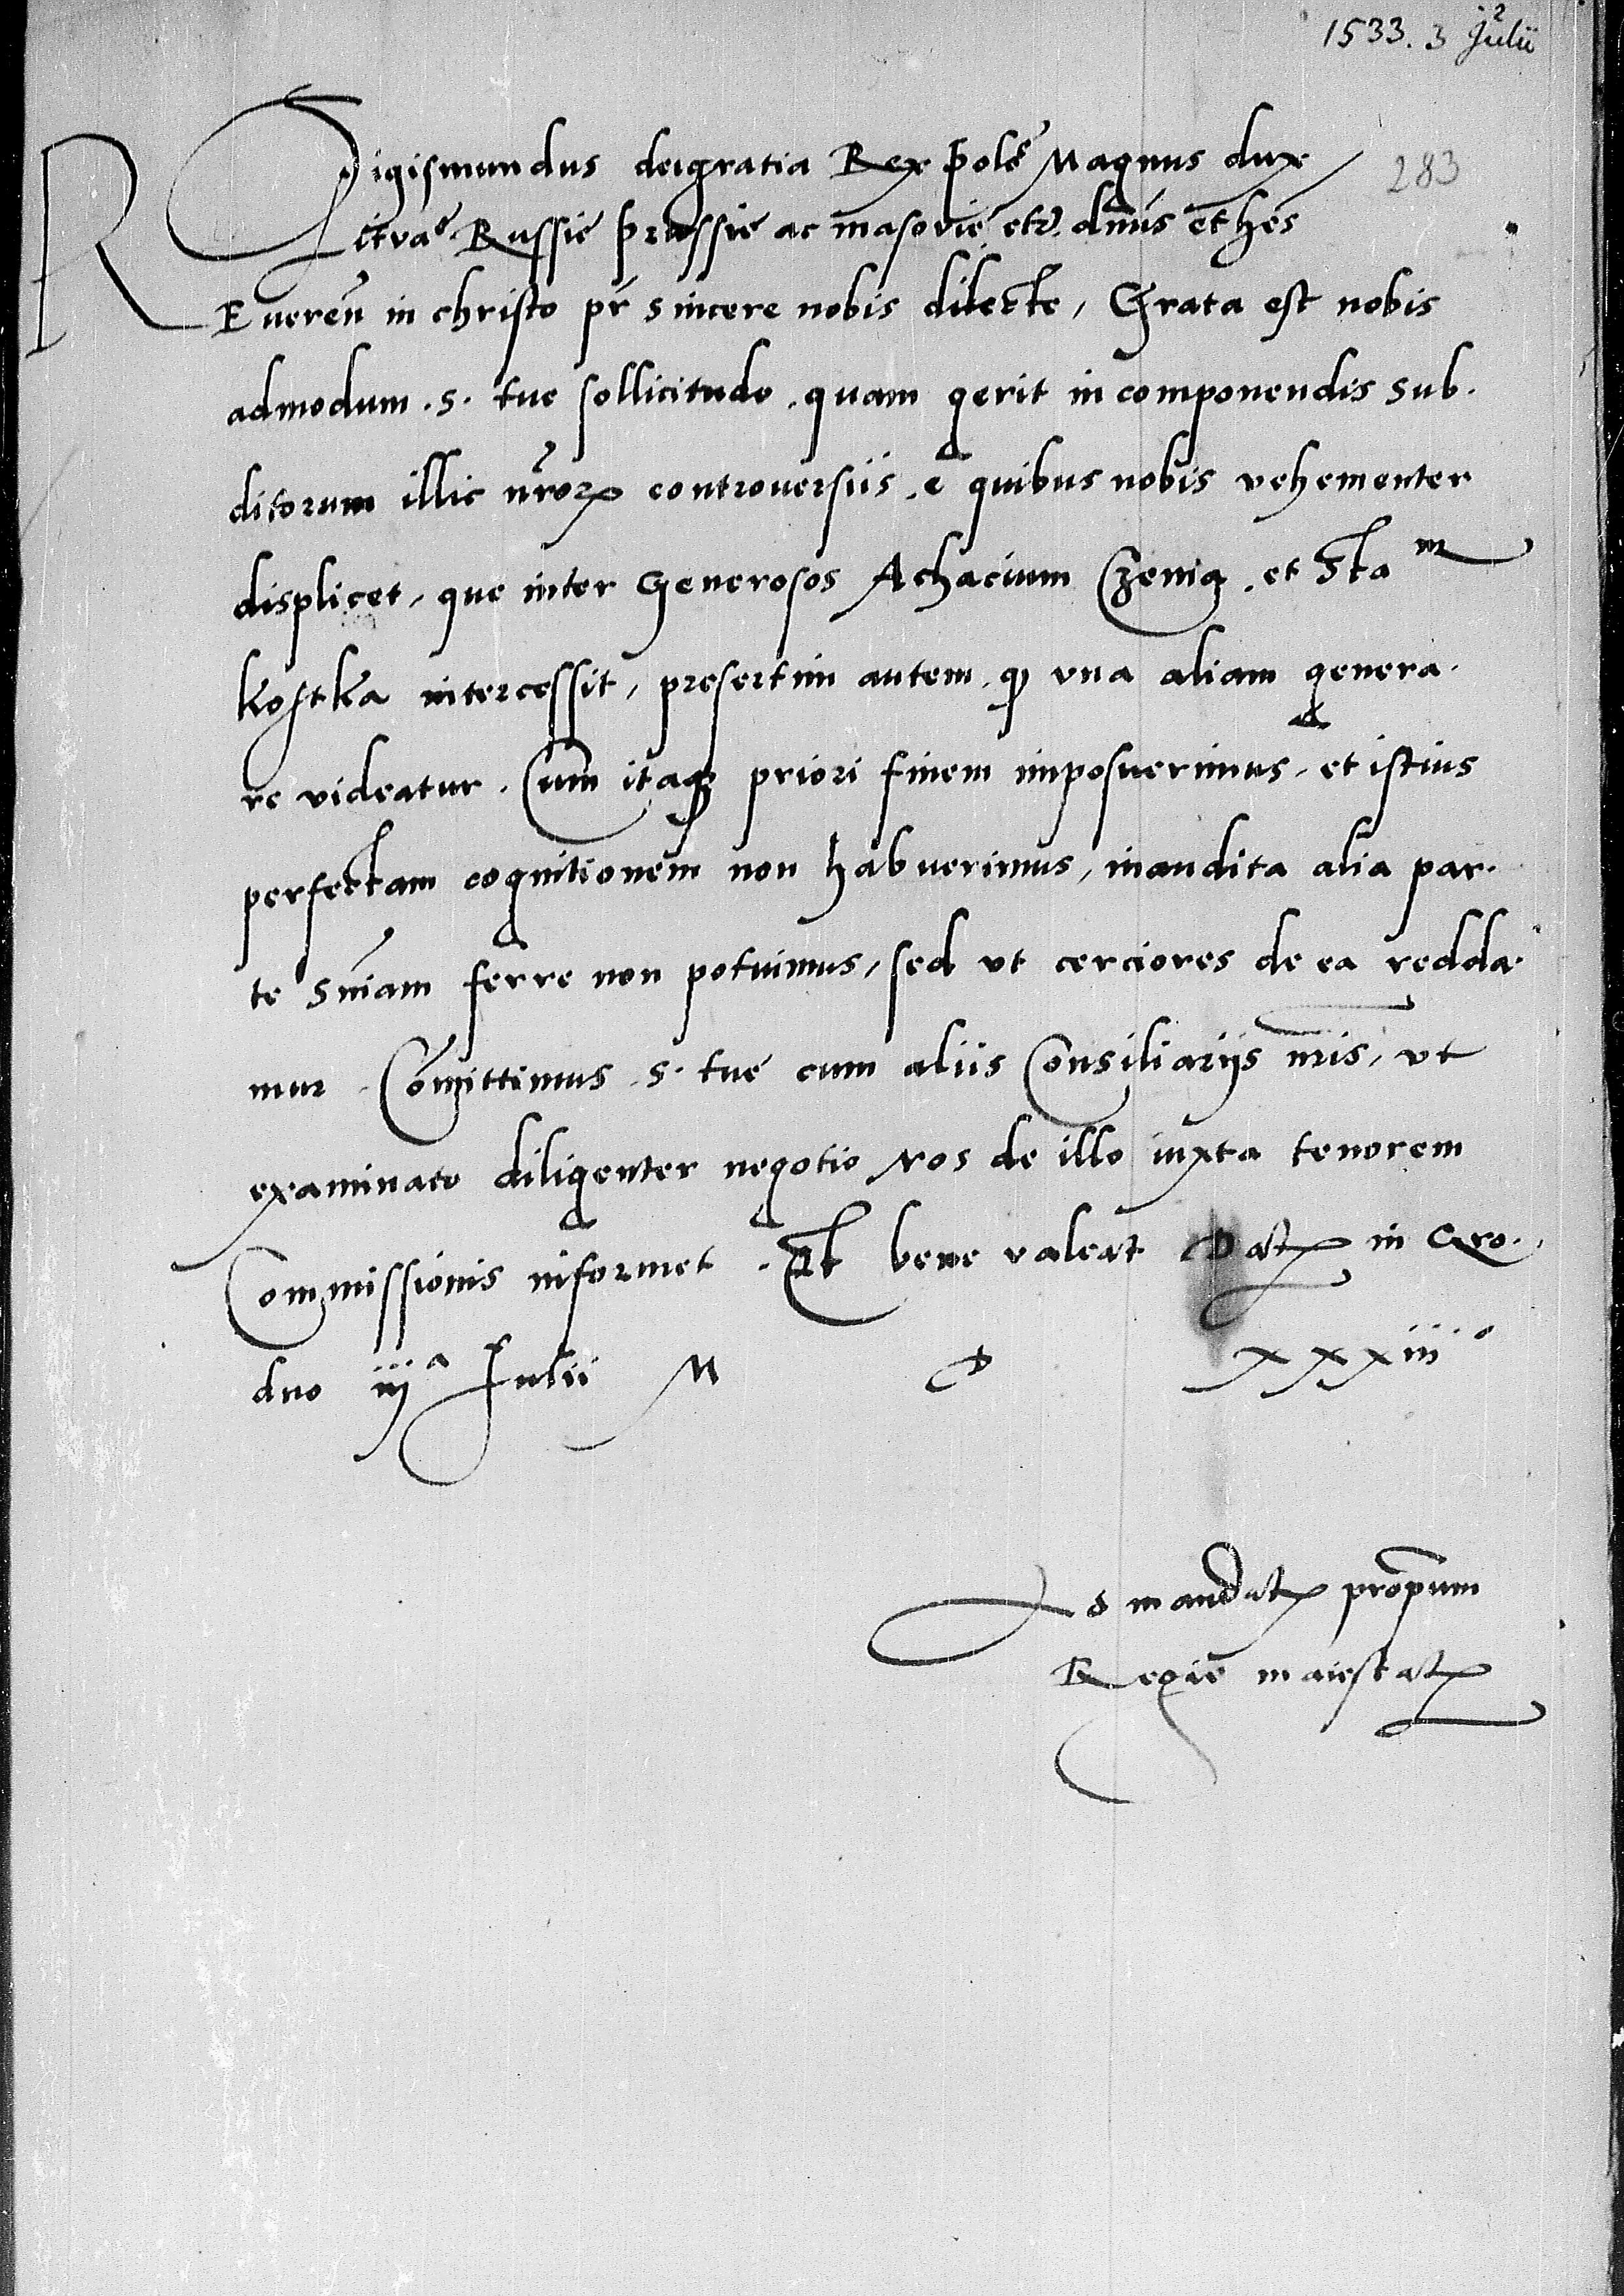 1533. 3 Julii
2
283
Sigismundus deigratia Rex Polē Magnus dux
Litvaē Russie Prussie ac masovie etz. dn̄us et hes
Reueren̄ in christo pr̄ sincere nobis dilecte, Grata est nobis
admodum . s. tue sollicitudo . quam gerit in componendis sub.
ditorum illic nr̄oꝝ controuersiis . e quibus nobis vehementer
displicet, que inter Generosos Achacium Czema . et Staᵐ
Kostka intercessit, presertim autem . ꝙ vna aliam genera.
re videatur . Cum itaqꝫ priori finem imposuerimus . et istius
perfectam cognitionem non habuerimus, inaudita alia par.
te sn̄iam ferre non potuimus, sed vt cerciores de ea redda.
mur . Com̄ittimus . s. tue cum aliis Consiliariis nr̄is, vt
examinato diligenter negotio Nos de illo iuxta tenorem
Commissionis informet . Et bene valeat Datꝫ in Gro.
dno iijᵃ Julii M D xxxiiiº
Ad mandatꝫ propr̄ium
Regie maiestatꝫ